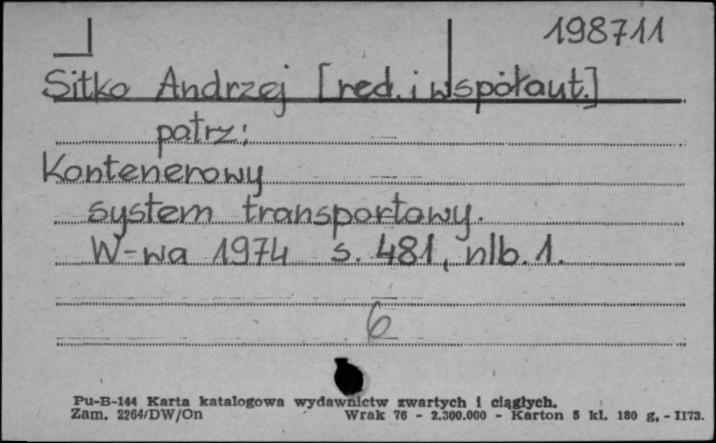 198711
Sitko Andrzej [red. i współaut.]
patrz:
Kontenerowy
system transportowy.
W-wa 1974 s. 481, nlb. 1.
6
Pu-B-144 Karta katalogowa wydawnictw zwartych i ciągłych.
Zam. 2264/DW/On Wrak 76 - 2.300.000 - Karton 5 kl. 180 g. - II73.